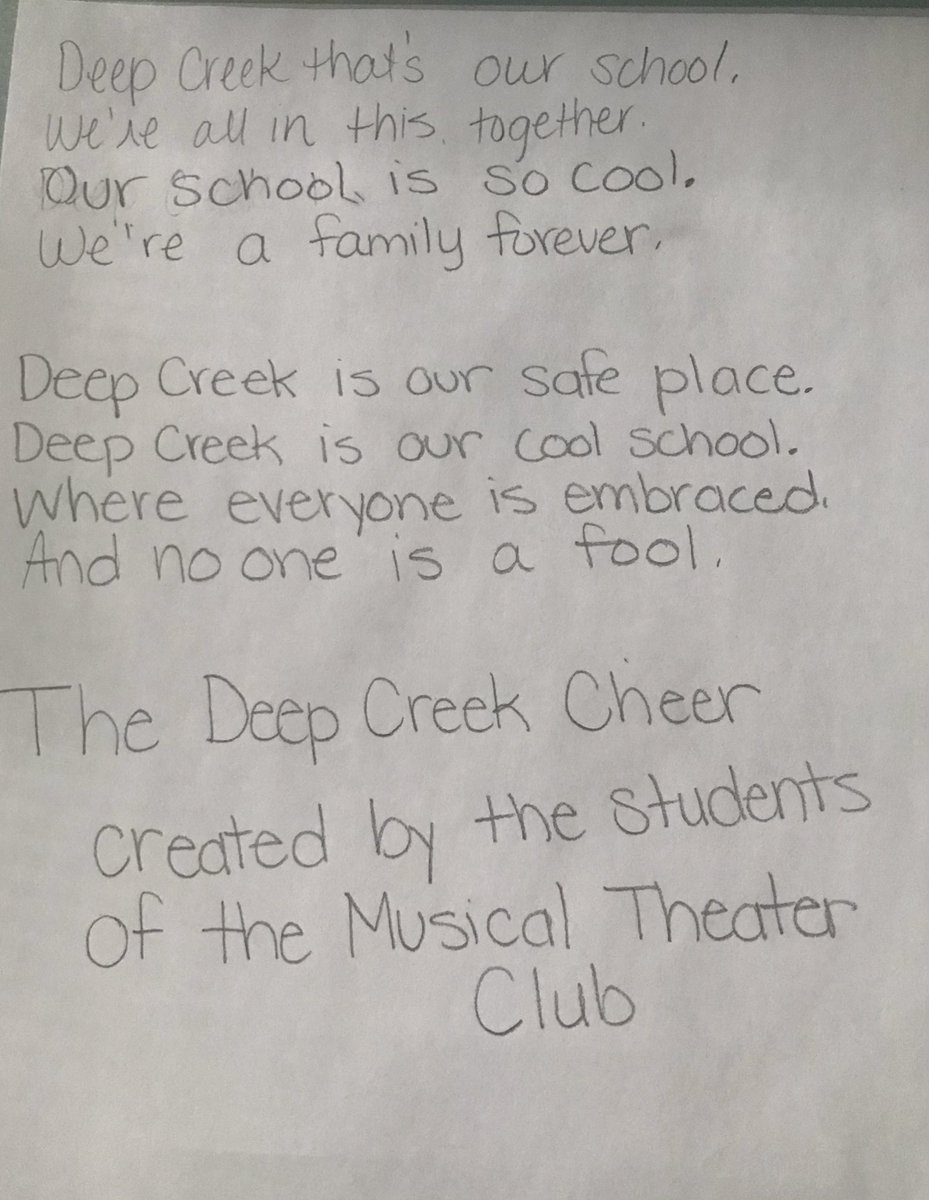 Deep Creek that's our school.
We're all in this together.
Our school is so cool.
We"re a family forever.
Deep Creek is our safe place.
Deep Creek is our cool school.
Where everyone is embraced.
And no one is a fool.
The Deep Creek Cheer
created by the students
of the Musical Theater
Club